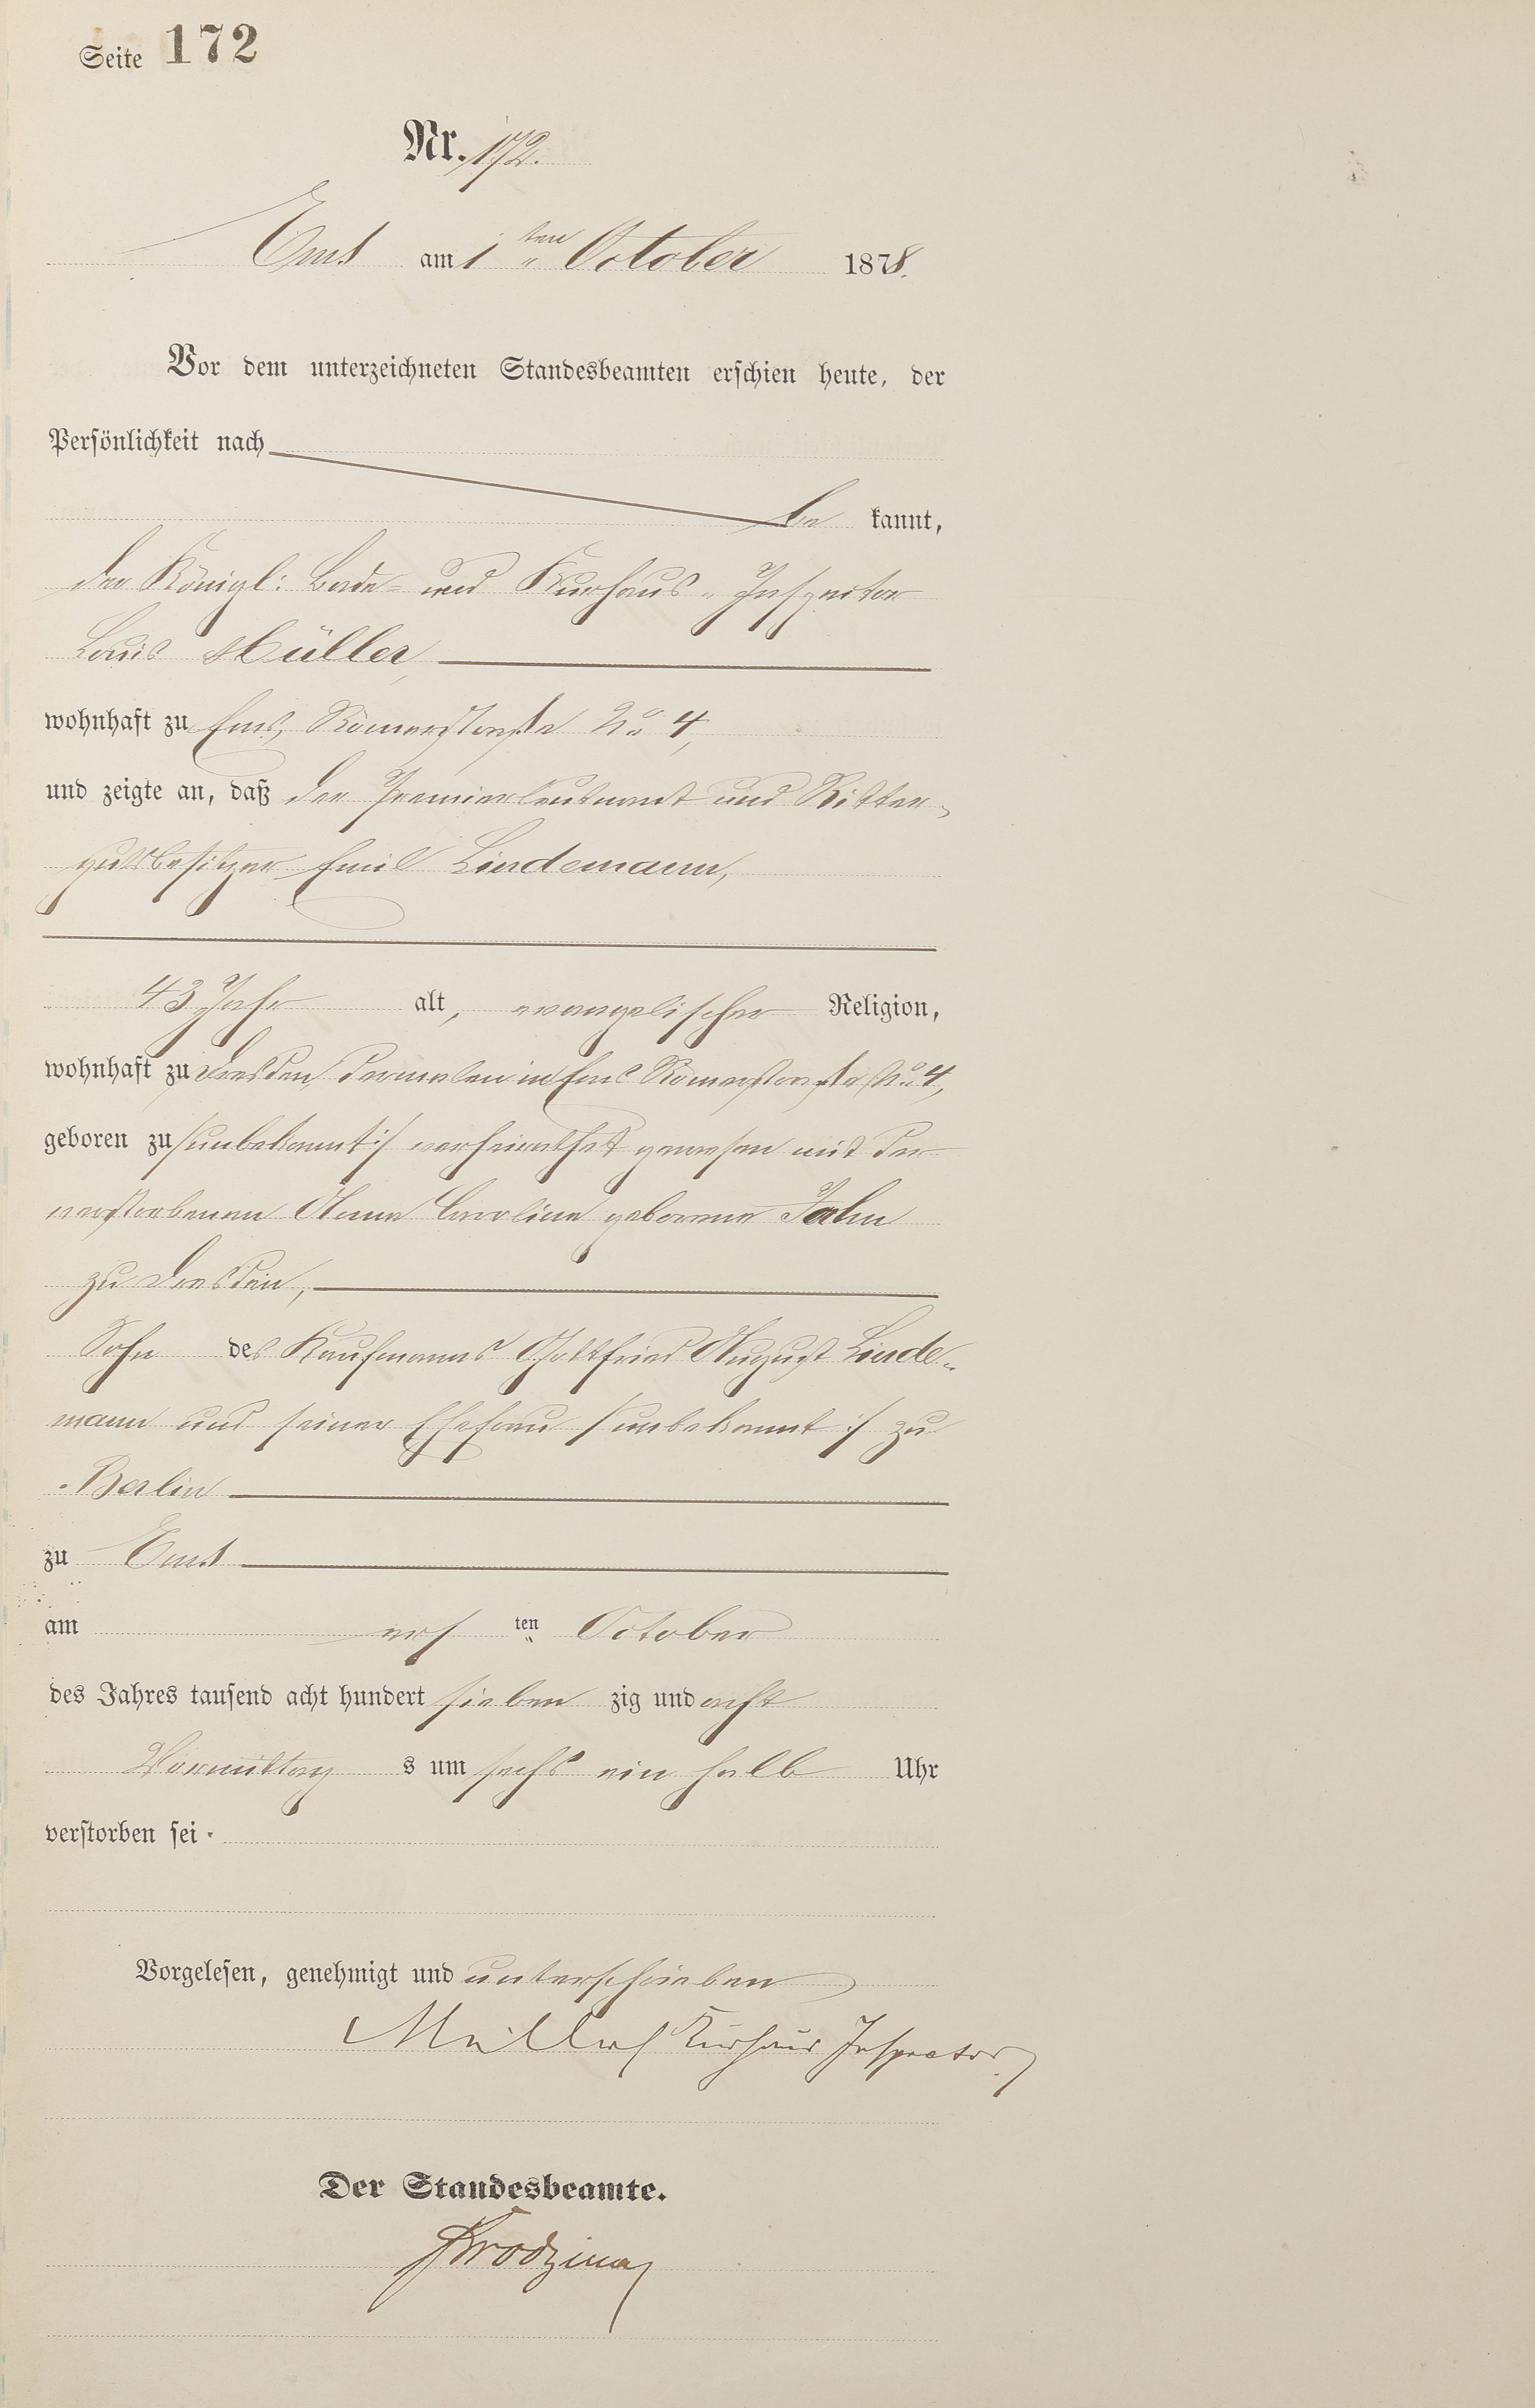 Seite 172
Nr. 172.
Ems am 1ten October 1878.
Vor dem unterzeichneten Standesbeamten erschien heute, der
Persönlichkeit nach
be kannt,
der Königl: Bade- und Kurhaus-Inspector
Louis Müller,
wohnhaft zu Ems, Römerstraße No 4,
und zeigte an, daß der Premierleutnant und Ritter-
gutsbesitzer Emil Lindemann,
43 Jahr alt, evangelischer Religion,
wohnhaft zu Dresden, dermalen in Ems Römerstraße No 4,
geboren zu /:unbekannt:/ verheirathet gewesen mit der
verstorbenen Anna Caroline geborene Jahn
zu Dresden,
Sohn des Kaufmanns Gottfried August Linde-
mann und seiner Ehefrau /:unbekannt:/ zu
Berlin
zu Ems
am ers ten October
des Jahres tausend acht hundert sieben zig und acht
Vormittag s um sechs ein halb Uhr
verstorben sei.
Vorgelesen, genehmigt und unterschrieben
Müller Kurhaus Inspector
Der Standesbeamte.